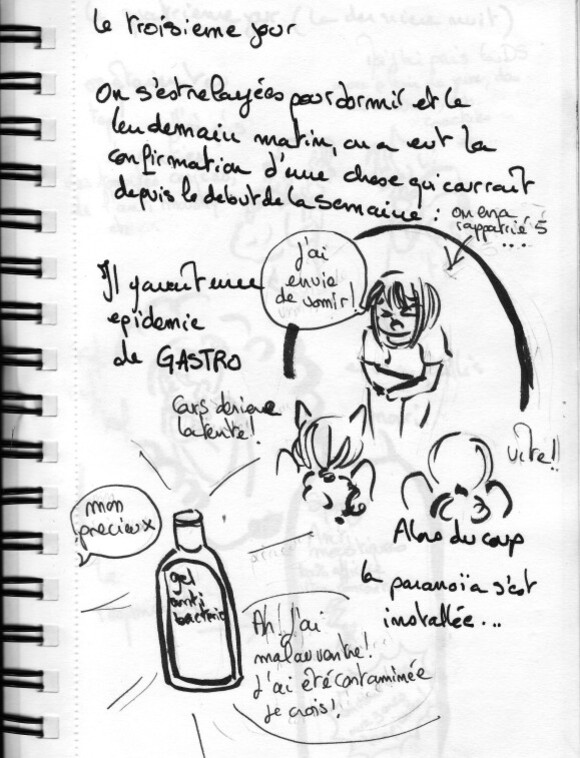 Le troisieme jour
On s'est relayées pour dormir et le
lendemain matin, on a eut la
confirmation d'une chose qui courrait
depuis le debut de la semaine :
on en a
rappatrié 5
...
j'ai
envie
de vomir!
Il y avait une
epidemie
de GASTRO
cours derriere
la tente!
vite!!
mon
precieux
gel
anti
bacterie
Alors du coup
la paranoïa s'est
installée...
Ah! J'ai
mal au ventre!
J'ai été contaminée
je crois!